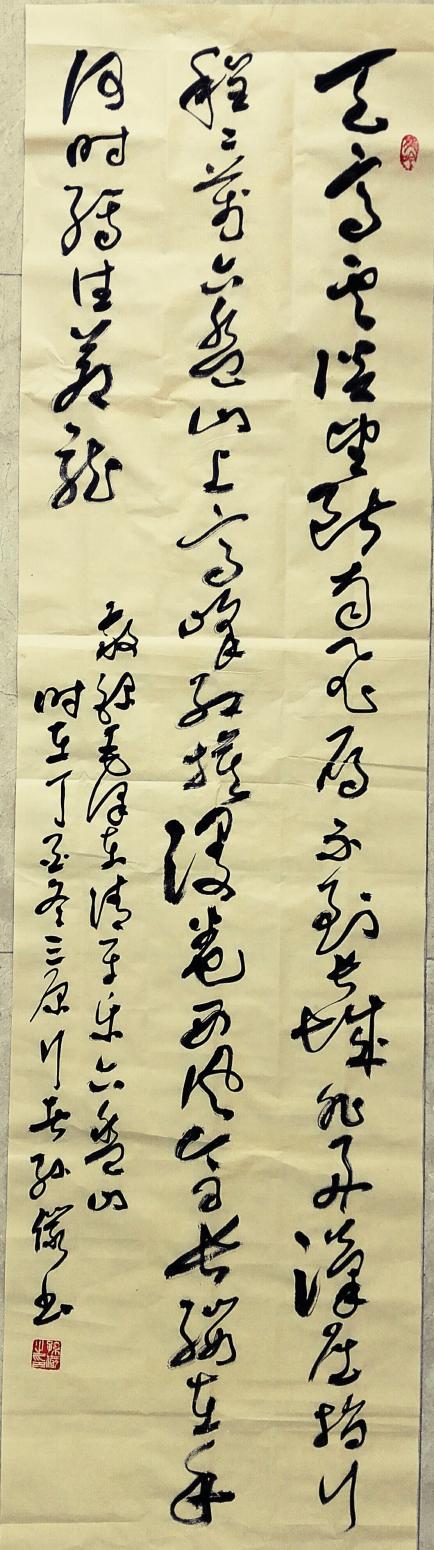 天高云淡望断南飞雁不到长城非好汉屈指行
程二萬六盘山上高峰红旗漫卷西风今日长缨在手
何时缚住苍龙
敬录毛泽东清平乐六盘山
时在丁酉冬三原行者孙书